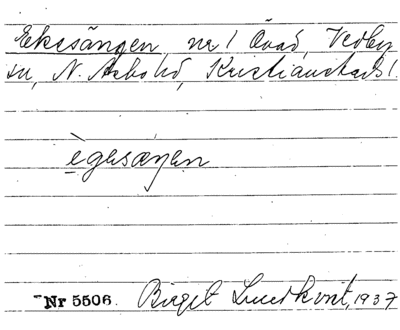 Ekesången, nr 1 Övad, Vedby
sn, N. Åsbo hd, Kristianstads l.
ègesɑŋen
Nr 5506. Birgit Lundkvist, 1937